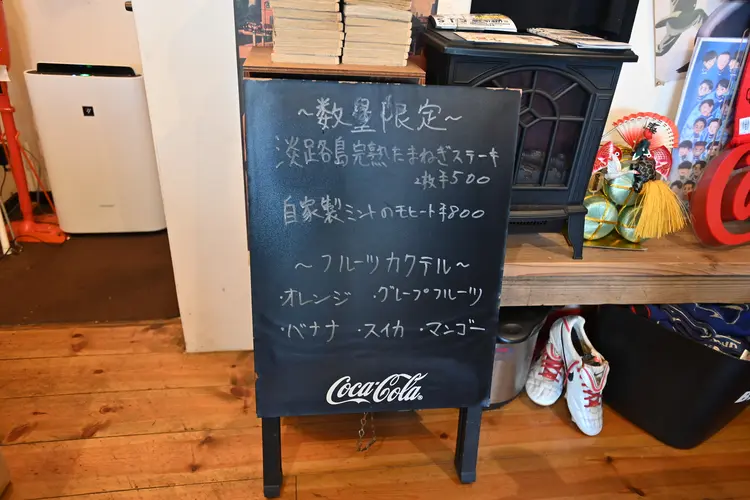 ~数量限定~
淡路島完熟たまねぎステーキ
2枚¥500
自家製ミントのモヒート¥800
~フルーツカクテル~
・オレンジ ・グレープフルーツ
・バナナ ・スイカ ・マンゴー
Coca-Cola®